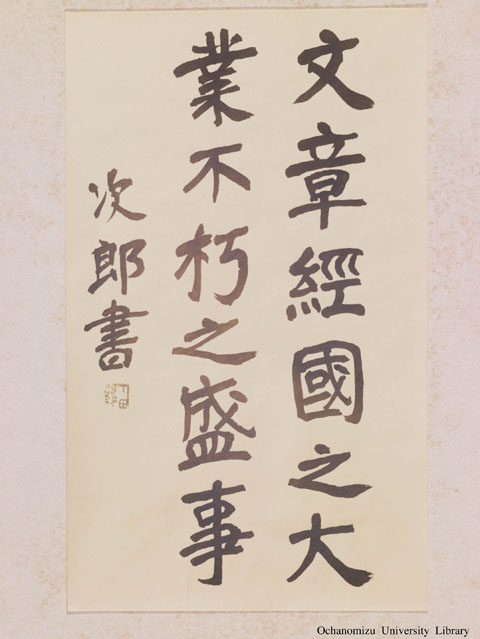 文章經國之大
業不朽之盛事
次郎書
Ochanomizu University Library